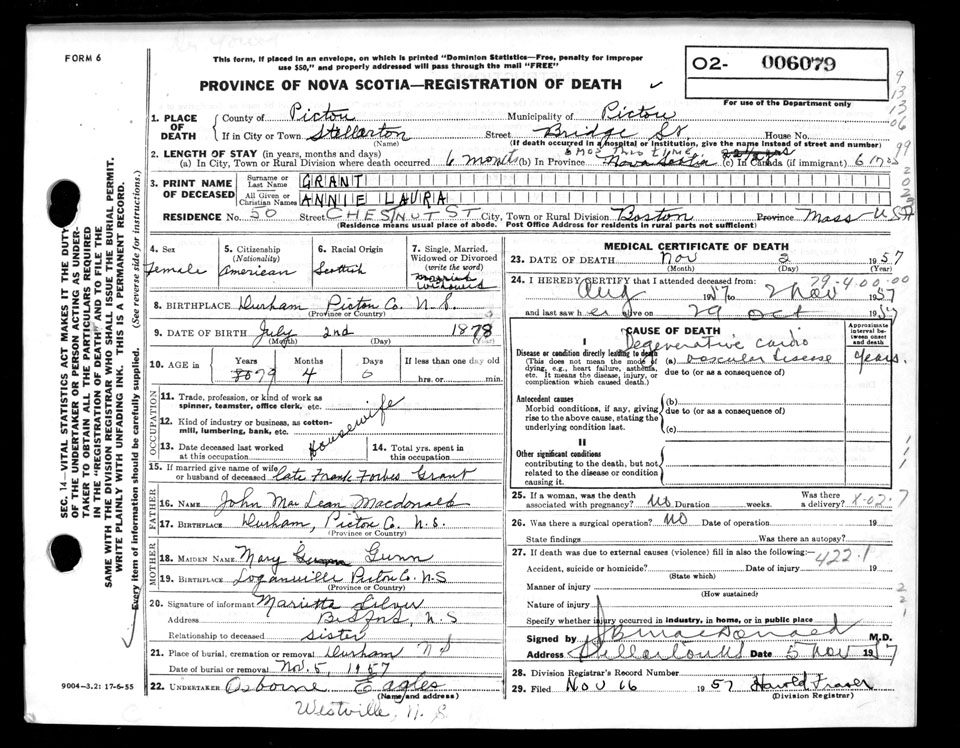 FORM 6
This form, if placed in an envelope, on which is printed "Dominion Statistics—Free, penalty for improper
use $50," and properly addressed will pass through the mail "FREE"
PROVINCE OF NOVA SCOTIA—REGISTRATION OF DEATH
02- 006079
For use of the Department only
SEC. 14—VITAL STATISTICS ACT MAKES IT THE DUTY
OF THE UNDERTAKER OR PERSON ACTING AS UNDER-
TAKER TO OBTAIN ALL THE PARTICULARS REQUIRED
IN THE "REGISTRATION OF DEATH" AND TO FILE THE
SAME WITH THE DIVISION REGISTRAR WHO SHALL ISSUE THE BURIAL PERMIT.
WRITE PLAINLY WITH UNFADING INK. THIS IS A PERMANENT RECORD.
Every item of information should be carefully supplied. (See reverse side for instructions.)
1. PLACE OF DEATH
County of Pictou Municipality of Pictou
If in City or Town Stellarton Street Bridge St. House No.
(Name) (If death occurred in a hospital or institution, give the name instead of street and number)
2. LENGTH OF STAY (in years, months and days) 6 mos This time
(a) In City, Town or Rural Division where death occurred 6 months (b) In Province Nova Scotia (c) In Canada (if immigrant) 6 mos
3. PRINT NAME OF DECEASED
Surname or Last Name GRANT
All Given or Christian Names ANNIE LAURA
RESIDENCE No. 50 Street CHESTNUT ST City, Town or Rural Division Boston Province Mass USA
(Residence means usual place of abode. Post Office Address for residents in rural parts not sufficient)
4. Sex
Female
5. Citizenship (Nationality)
American
6. Racial Origin
Scottish
7. Single, Married, Widowed or Divorced (write the word)
Married
Widowed
8. BIRTHPLACE Durham Pictou Co. N.S.
(Province or Country)
9. DATE OF BIRTH July 2nd 1878
(Month) (Day) (Year)
10. AGE in Years Months Days If less than one day old
80 79 4 0 hrs. or min.
OCCUPATION
11. Trade, profession, or kind of work as spinner, teamster, office clerk, etc.
12. Kind of industry or business, as cotton-mill, lumbering, bank, etc.
Housewife
13. Date deceased last worked at this occupation
14. Total yrs. spent in this occupation
15. If married give name of wife or husband of deceased late Frank Forbes Grant
FATHER
16. NAME John Mac Lean Macdonald
17. BIRTHPLACE Durham, Pictou Co. N.S.
(Province or Country)
MOTHER
18. MAIDEN NAME Mary Gunn
19. BIRTHPLACE Loganville Pictou Co. N.S
(Province or Country)
20. Signature of informant Marietta Silver
Address Bedford, N.S
Relationship to deceased sister
21. Place of burial, cremation or removal Durham N S
Date of burial or removal Nov. 5, 1957
22. UNDERTAKER Osborne Eagles
(Name and address)
Westville, N. S.
9004-3.2: 17-6-55
MEDICAL CERTIFICATE OF DEATH
23. DATE OF DEATH Nov 2 1957
(Month) (Day) (Year)
24. I HEREBY CERTIFY that I attended deceased from: 79-4-00-00
Aug 1957 to 2 Nov 1957
and last saw her alive on 29 Oct 1957
CAUSE OF DEATH
Approximate interval between onset and death
I
Disease or condition directly leading to death (a) Degenerative cardio vascular disease years.
(This does not mean the mode of dying, e.g., heart failure, asthenia, etc. It means the disease, injury, or complication which caused death.)
due to (or as a consequence of)
Antecedent causes
Morbid conditions, if any, giving rise to the above cause, stating the underlying condition last.
(b)
due to (or as a consequence of)
(c)
II
Other significant conditions
contributing to the death, but not related to the disease or condition causing it.
25. If a woman, was the death associated with pregnancy? No Duration weeks. Was there a delivery? 8-02-7
26. Was there a surgical operation? No Date of operation 19
State findings Was there an autopsy?
27. If death was due to external causes (violence) fill in also the following:— 422-1
Accident, suicide or homicide? Date of injury 19
(State which)
Manner of injury
(How sustained)
Nature of injury
Specify whether injury occurred in industry, in home, or in public place
Signed by J B MacDonald M.D.
Address Stellarton NS Date 5 Nov 1957
28. Division Registrar's Record Number
29. Filed Nov 16 1957 Harold Fraser
(Division Registrar)